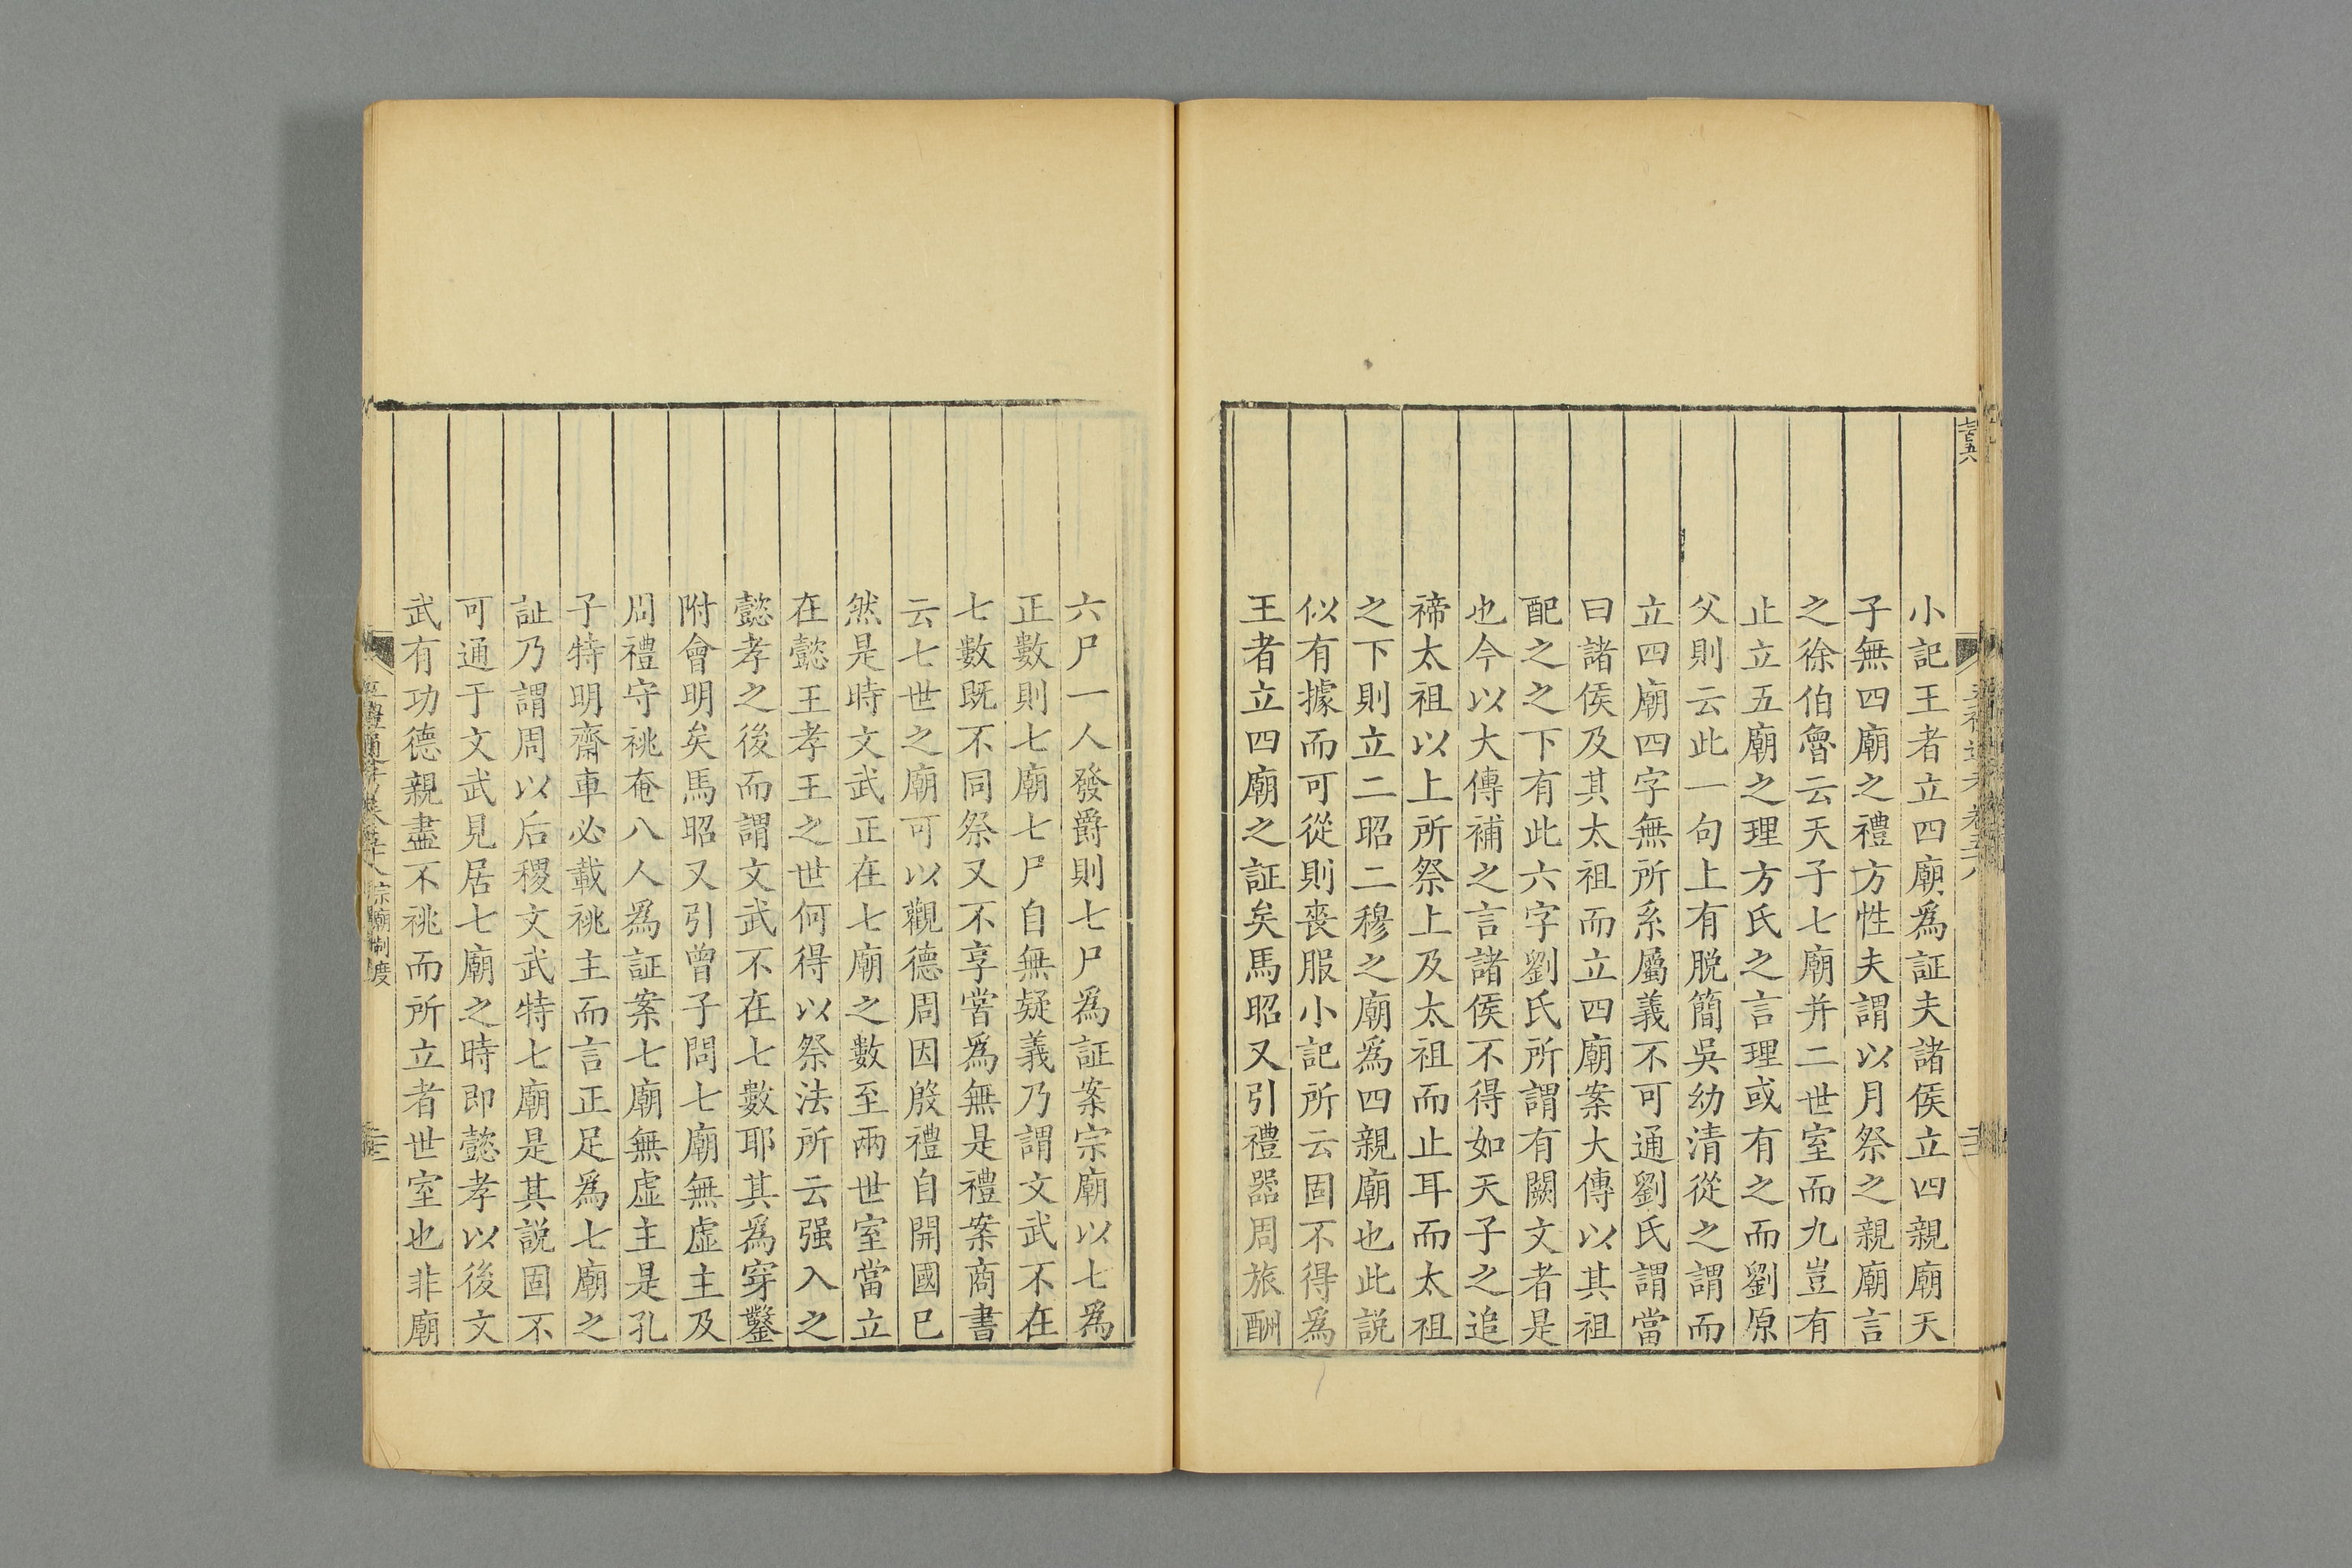 小記王者立四廟爲証夫諸侯立四親廟天
子無四廟之禮方性夫謂以月祭之親廟言
之徐伯魯云天子七廟并二世室而九豈有
止立五廟之理方氏之言理或有之而劉原
父則云此一句上有脱簡吳幼清從之謂而
立四廟四字無所系屬義不可通劉氏謂當
曰諸侯及其太祖而立四廟案大傳以其祖
配之之下有此六字劉氏所謂有闕文者是
也今以大傳補之言諸侯不得如天子之追
禘太祖以上所祭上及太祖而止耳而太祖
之下則立二昭二穆之廟爲四親廟也此説
似有據而可從則喪服小記所云固不得爲
王者立四廟之証矣馬昭又引禮器周旅酬
六尸一人發爵則七尸爲証案宗廟以七爲
正數則七廟七尸自無疑義乃謂文武不在
七數既不同祭又不享嘗爲無是禮案商書
云七世之廟可以觀德周因殷禮自開國已
然是時文武正在七廟之數至兩世室當立
在懿王孝王之世何得以祭法所云强入之
懿孝之後而謂文武不在七數耶其爲穿鑿
附會明矣馬昭又引曾子問七廟無虛主及
周禮守祧奄八人爲証案七廟無虛主是孔
子特明齋車必載祧主而言正足爲七廟之
証乃謂周以后稷文武特七廟是其説固不
可通于文武見居七廟之時即懿孝以後文
武有功德親盡不祧而所立者世室也非廟
宗廟制度